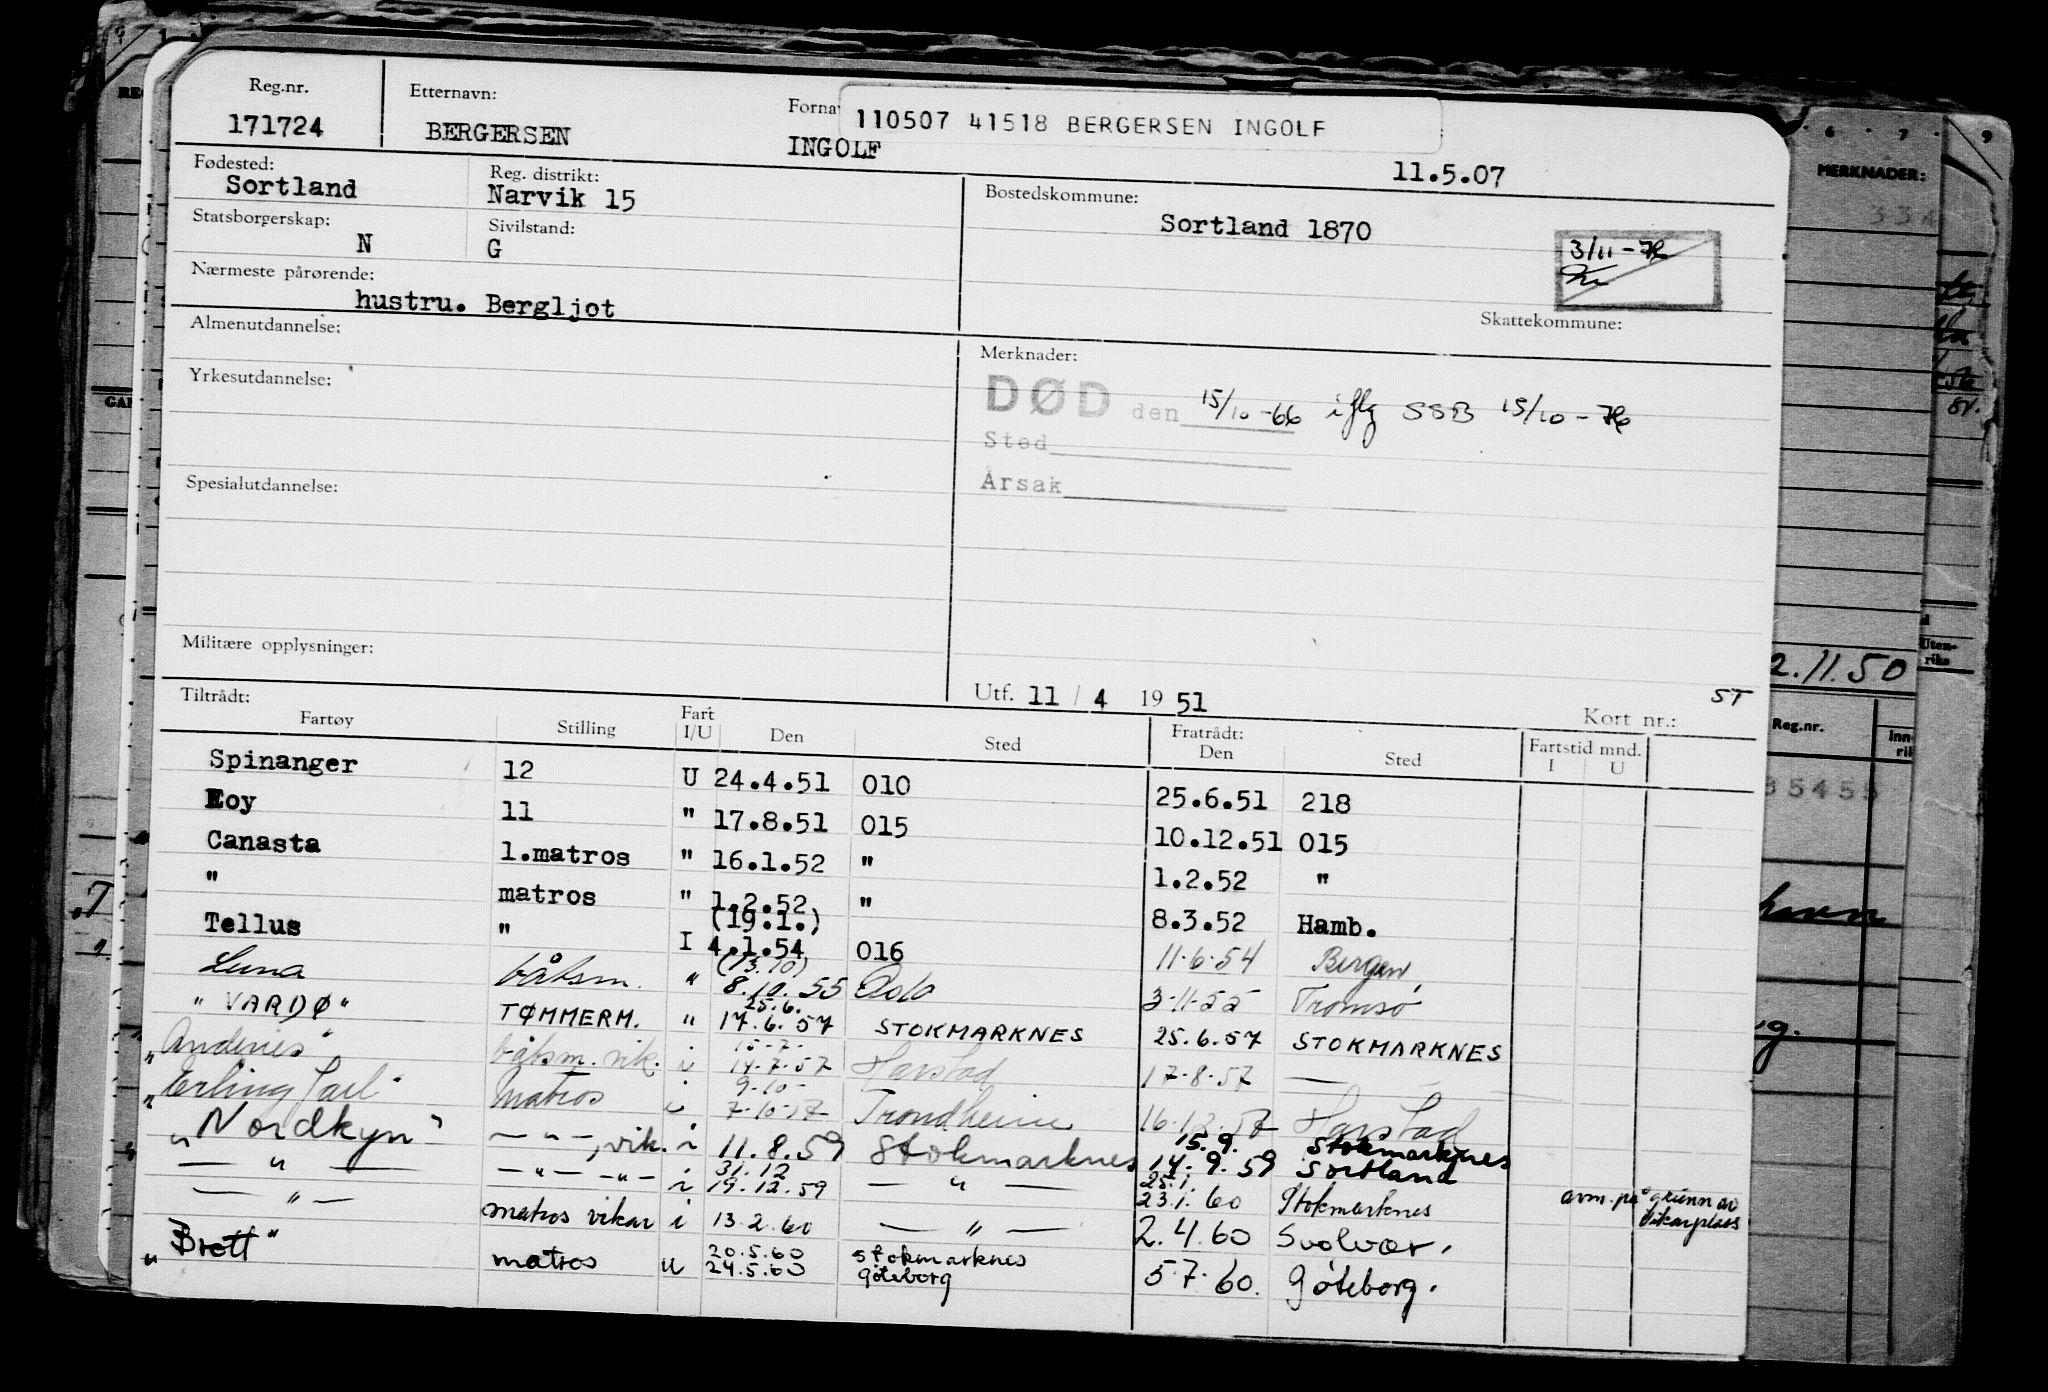 Reg.nr. Etternavn: Fornav
171724 BERGERSEN INGOLF 110507 41518 BERGERSEN INGOLF
11.5.07
Fødested: Reg. distrikt: Bostedskommune:
Sortland Narvik 15 Sortland 1870
Statsborgerskap: Sivilstand:
N G
3/11-76
Nærmeste pårørende:
hustru. Bergljot
Skattekommune:
Almenutdannelse: Merknader:
Yrkesutdannelse:
DØD den 15/10-66 iflg SSB 15/10-76
Sted
Årsak
Spesialutdannelse:
Militære opplysninger:
Utf. 11/4 1951 ST
Kort nr.:
Tiltrådt: Fratrådt:
Fartøy Stilling Fart I/U Den Sted Den Sted Fartstid mnd. I U
Spinanger 12 U 24.4.51 010 25.6.51 218
Eoy 11 " 17.8.51 015 10.12.51 015
Canasta 1.matros " 16.1.52 " 1.2.52 "
" matros " 1.2.52 " 8.3.52 Hamb.
(19.1.)
Tellus " I 4.1.54 016 11.6.54 Bergen
(13.10)
Luna båtsm. " 8.10.55 Oslo 3.11.55 Tromsø
25.6.
"VARDØ" TØMMERM. " 17.6.57 STOKMARKNES 25.6.57 STOKMARKNES
15-7-
"Andenes" båtsm. vik. i 14.7.57 Harstad 17.8.57 —
9-10-
"Erling Jarl" matros i 7-10-57 Trondheim 16.12.57 Harstad
15.9. Stokmarknes
"Nordkyn" —"—, vik. i 11.8.59 Stokmarknes 14.9.59 Sortland
31.12 25.1.
—"— —"— —"— i 19.12.59 —"— 23.1.60 Stokmarknes avm. på grunn av vikarplass
—"— matros vikar i 13.2.60 —"— 2.4.60 Svolvær.
20.5.60 Stokmarknes
"Brett" matros u 24.5.60 Göteborg 5.7.60. Göteborg.
MERKNADER:
2.11.50
Reg.nr.